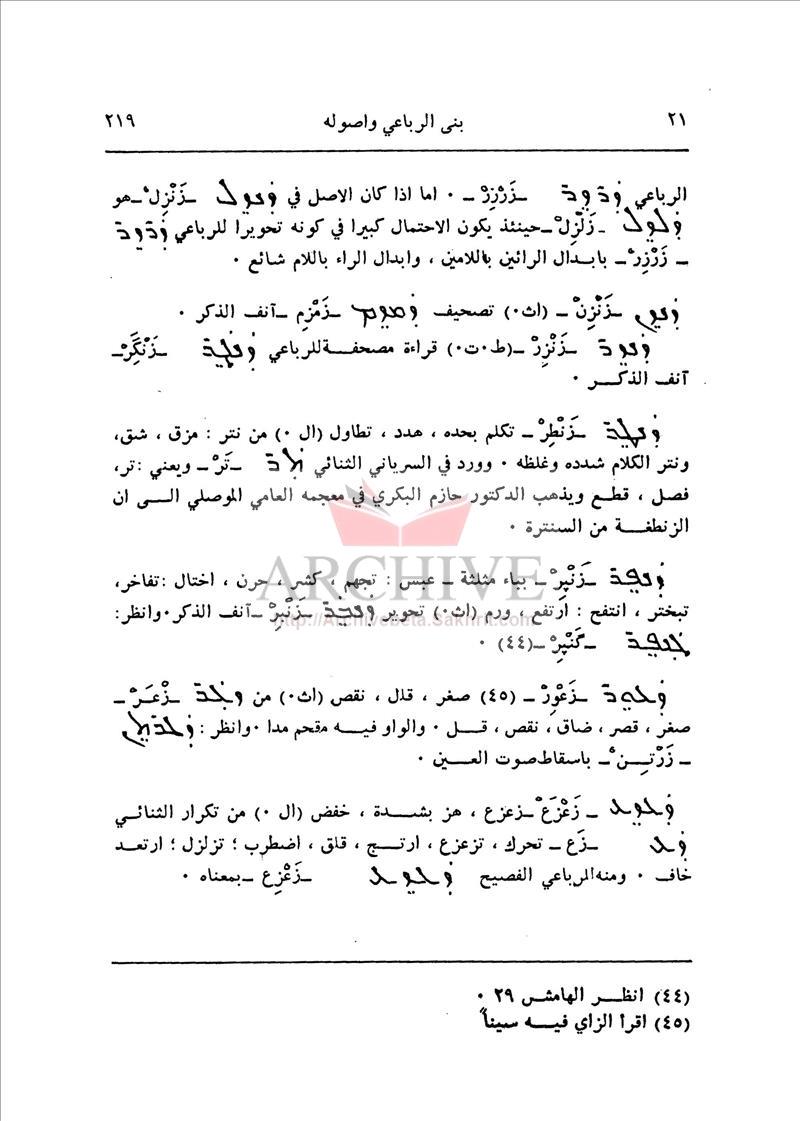 ٢١ بنى الرباعي واصوله ٢١٩
الرباعي ـ زَرْزِرْ ـ ٠ اما اذا كان الاصل في ـ زَنْزِلْ ـ هو
ـ زَلْزِلْ ـ حينئذ يكون الاحتمال كبيرا في كونه تحويرا للرباعي
ـ زَرْزِرْ ـ بابدال الرائين باللامين ، وابدال الراء باللام شائع ٠
ـ زَنْزِنْ ـ (اث٠) تصحيف ـ زَمْزِم ـ آنف الذكر ٠
ـ زَنْزِرْ ـ (ط٠ت٠) قراءة مصحفة للرباعي ـ زَنْگِرْ ـ
آنف الذكـر ٠
ـ زَنْطِرْ ـ تكلم بحده ، هدد ، تطاول (ال ٠) من نتر : مزق ، شق،
ونتر الكلام شدده وغلظه ٠ وورد في السرياني الثنائي ـ تَرْ ـ ويعني : تر،
فصل ، قطع ويذهب الدكتور حازم البكري في معجمه العامي الموصلي الـى ان
الزنطغـة من السنترة ٠
ـ زَنْپِرْ ـ بباء مثلثة ـ عبس : تجهم ، كشر ، حرن ، اختال : تفاخر،
تبختر ، انتفخ : ارتفع ، ورم (اث٠) تحوير ـ زَنْبِرْ ـ آنف الذكر ٠ وانظر:
ـ گَنْپِرْ ـ (٤٤) ٠
ـ زَعْوِرْ ـ (٤٥) صغر ، قلل ، نقص (اث٠) من ـ زْعَـرْ ـ
صغر ، قصر ، ضاق ، نقص ، قـل ٠ والواو فيـه مقحم مدا ٠ وانظر :
ـ زَرْتِـنْ ـ باسقاط صوت العـين ٠
ـ زَعْزَعْ ـ زعزع ، هز بشـدة ، خفض (ال ٠) من تكرار الثنائي
ـ زَع ـ تحرك ، تزعزع ، ارتـج ، قلق ، اضطرب ؛ تزلزل ؛ ارتعـد
خاف ٠ ومنه الرباعي الفصيح ـ زَعْزِع ـ بمعناه ٠
(٤٤) انظـر الهامش ٢٩ ٠
(٤٥) اقرأ الزاي فيـه سيناً
ARCHIVE
http://Archivebeta.Sakhrit.com